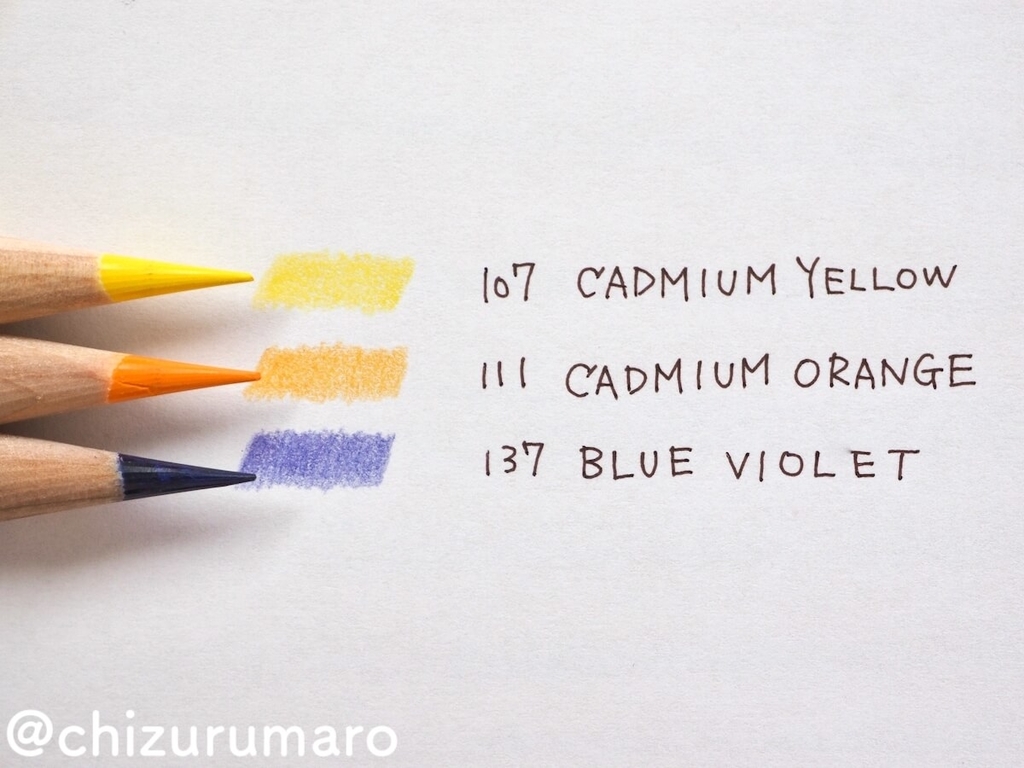 107 CADMIUM YELLOW
111 CADMIUM ORANGE
137 BLUE VIOLET
@chizurumaro